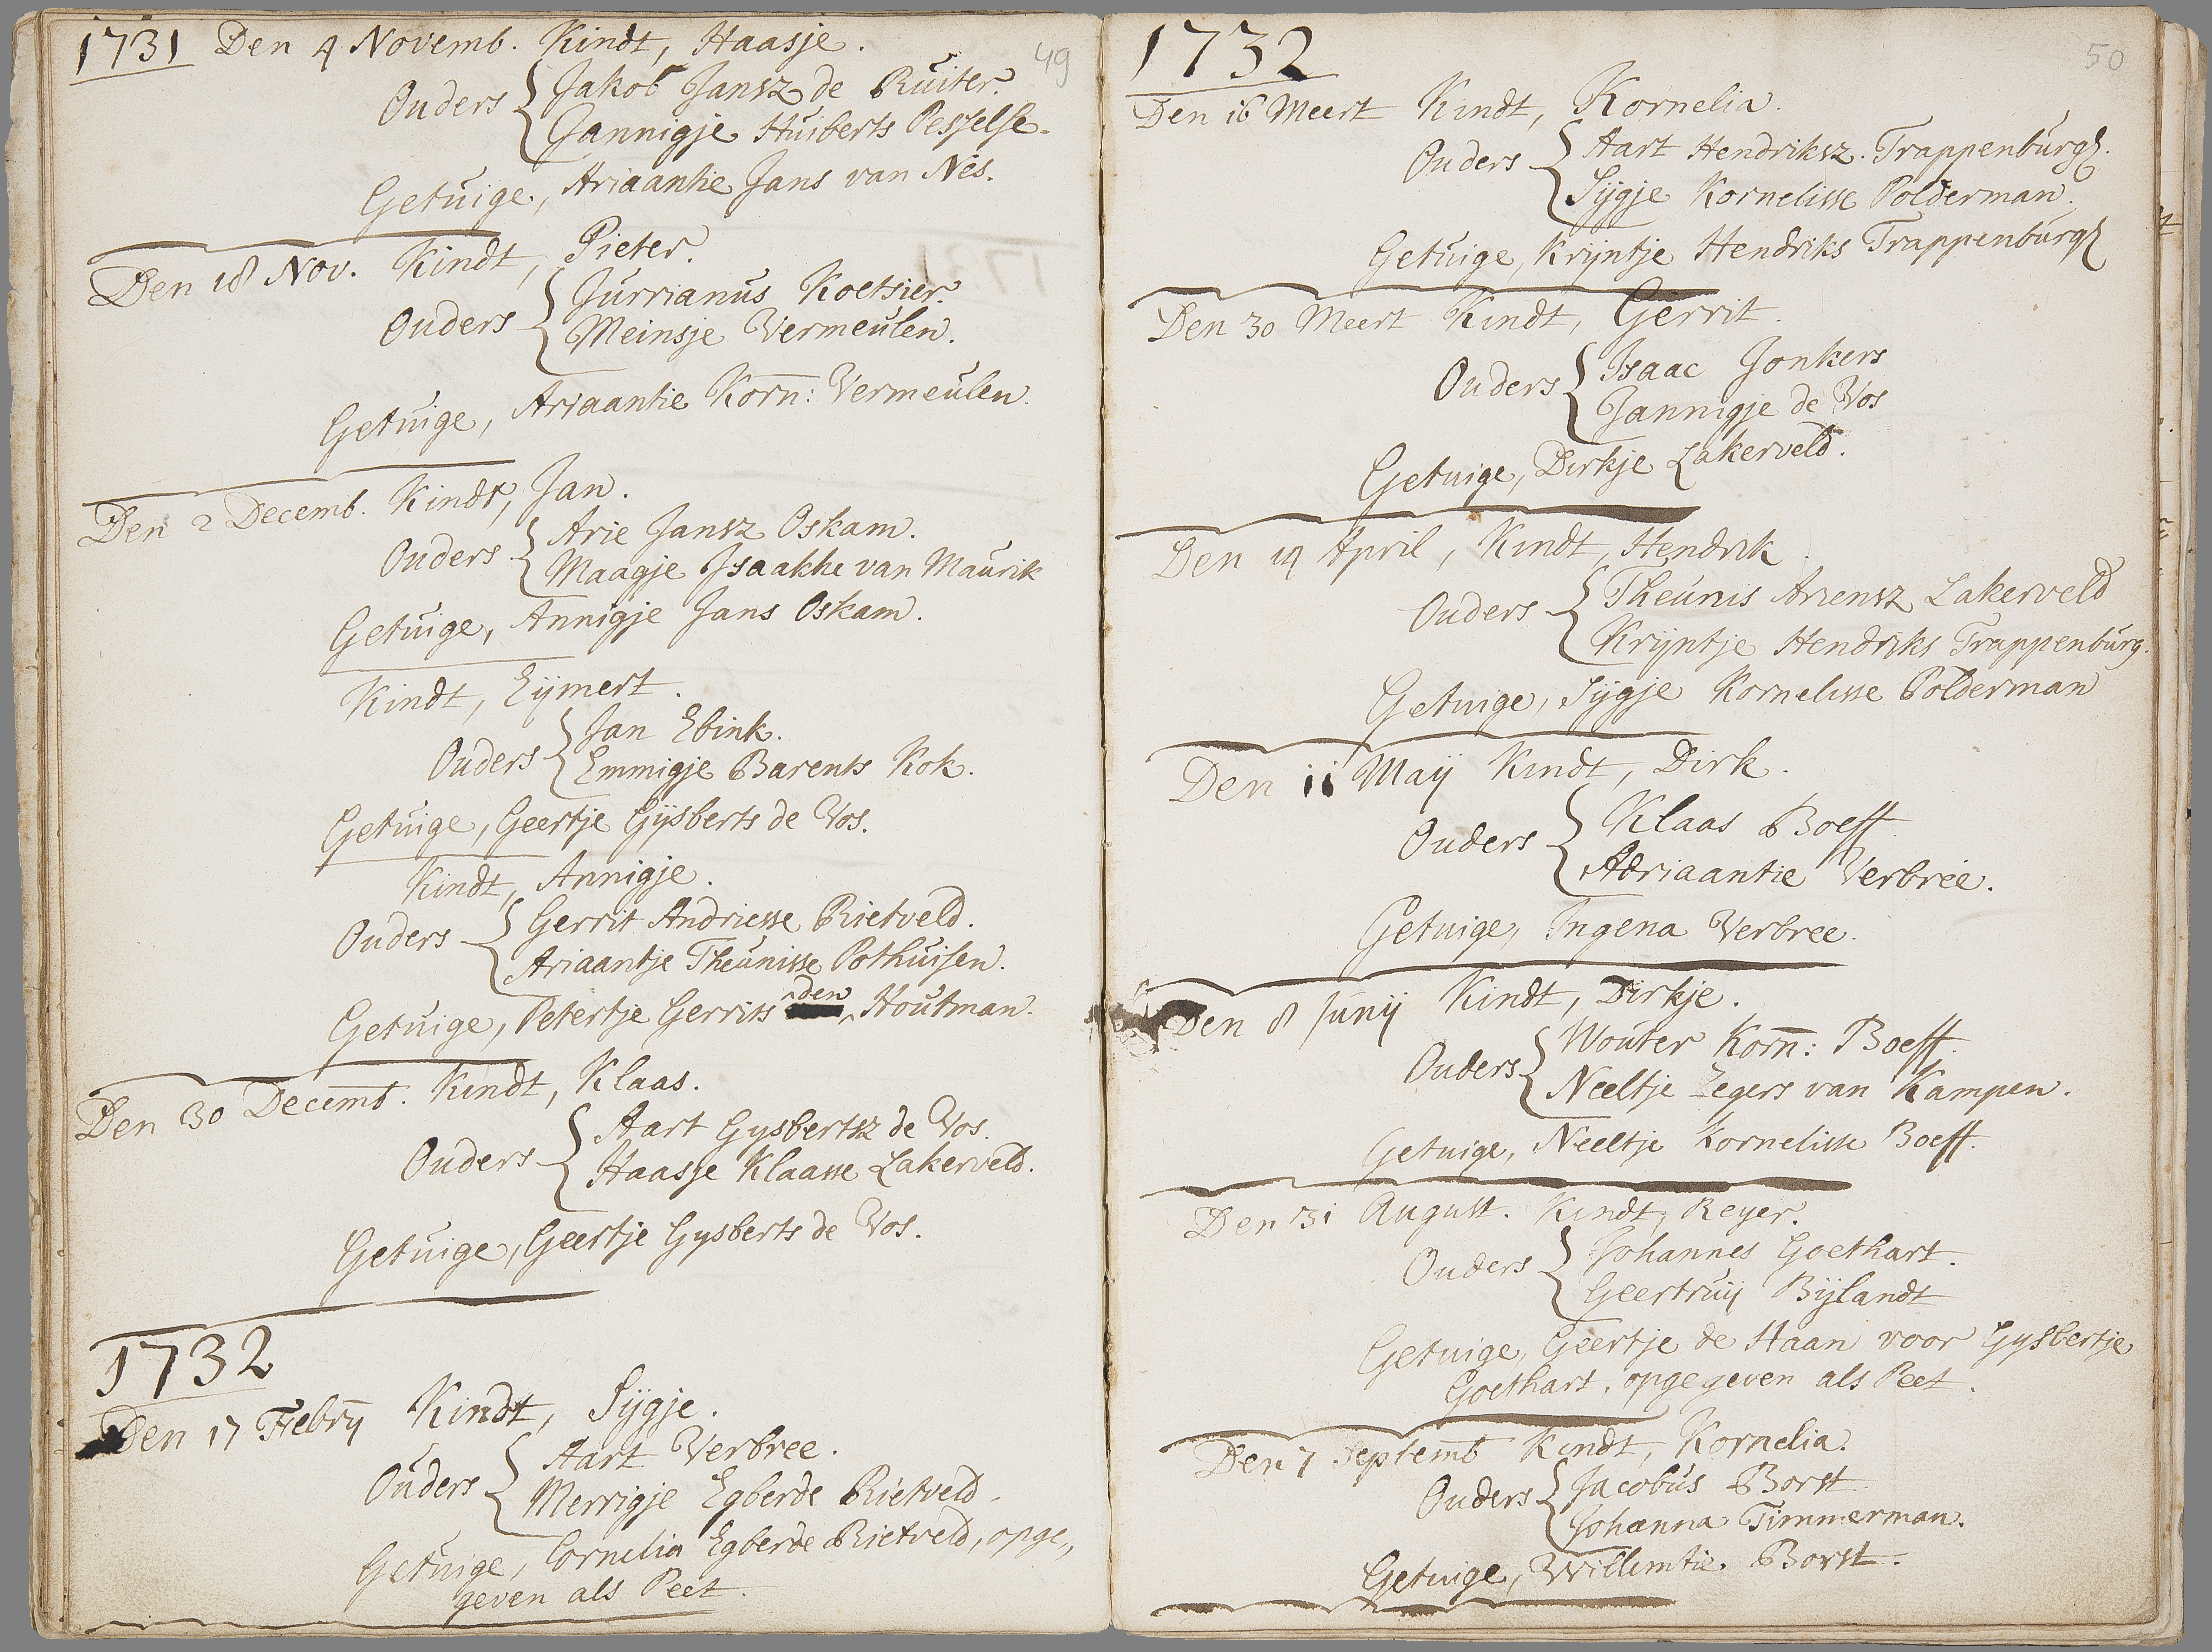 49
1731 Den 4 Novemb. Kindt, Haasje.
Ouders { Jakob Jansz de Ruiter.
Jannigje Huiberts Pesselse.
Getuige, Ariaantie Jans van Nes.
Den 18 Nov. Kindt, Pieter.
Ouders { Jurrianus Koetsier.
Meinsje Vermeulen.
Getuige, Ariaantie Korn: Vermeulen.
Den 2 Decemb. Kindt, Jan.
Ouders { Arie Jansz Oskam.
Maagje Isaakke van Maurik
Getuige, Annigje Jans Oskam.
Kindt, Eijmert.
Ouders { Jan Ebink.
Emmigje Barents Kok.
Getuige, Geertje Gijsberts de Vos.
Kindt, Annigje.
Ouders { Gerrit Andriesse Rietveld.
Ariaantje Theunisse Pothuisen.
Getuige, Petertje Gerrits den Houtman.
Den 30 Decemb. Kindt, Klaas.
Ouders { Aart Gysbertsz de Vos.
Haasje Klaasse Lakerveld.
Getuige, Geertje Gysberts de Vos.
1732
Den 17 Febrij Kindt, Sijgje.
Ouders { Aart Verbree.
Merrigje Egberde Rietveld.
Getuige, Cornelia Egberde Rietveld, opge„
geven als Peet.
50
1732
Den 16 Meert Kindt, Kornelia.
Ouders { Aart Hendriksz. Trappenburg.
Sijgje Kornelisse Polderman.
Getuige, Krijntje Hendriks Trappenburg
Den 30 Meert Kindt, Gerrit.
Ouders { Isaac Jonkers
Jannigje de Vos
Getuige, Dirkje Lakerveld.
Den 14 April, Kindt, Hendrik.
Ouders { Theunis Ariensz Lakerveld
Krijntje Hendriks Trappenburg.
Getuige, Sijgje Kornelisse Polderman
Den 11 Maij Kindt, Dirk.
Ouders { Klaas Boeff.
Adriaantie Verbree.
Getuige, Ingena Verbree.
Den 8 Junij Kindt, Dirkje.
Ouders { Wouter Korn: Boeff.
Neeltje Zegers van Kampen.
Getuige, Neeltje Kornelisse Boeff.
Den 31 August. Kindt, Reyer.
Ouders { Johannes Goethart.
Geertruij Bijlandt
Getuige, Geertje de Haan voor Gysbertje
Goethart, opgegeven als Peet.
Den 7 Septemb Kindt, Kornelia.
Ouders { Jacobus Borst
Johanna Timmerman.
Getuige, Willemtie Borst.